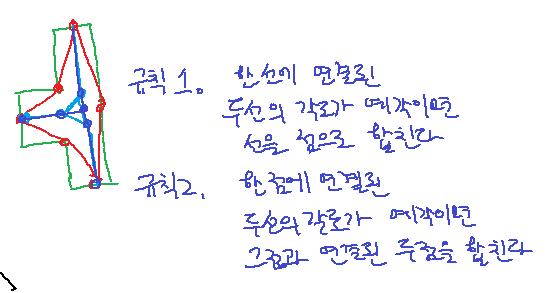 규칙 1. 한 선에 연결된
두선의 각도가 예각이면
선을 점으로 합친다
규칙2. 한점에 연결된
두선의 각도가 예각이면
그점과 연결된 두점을 합친다